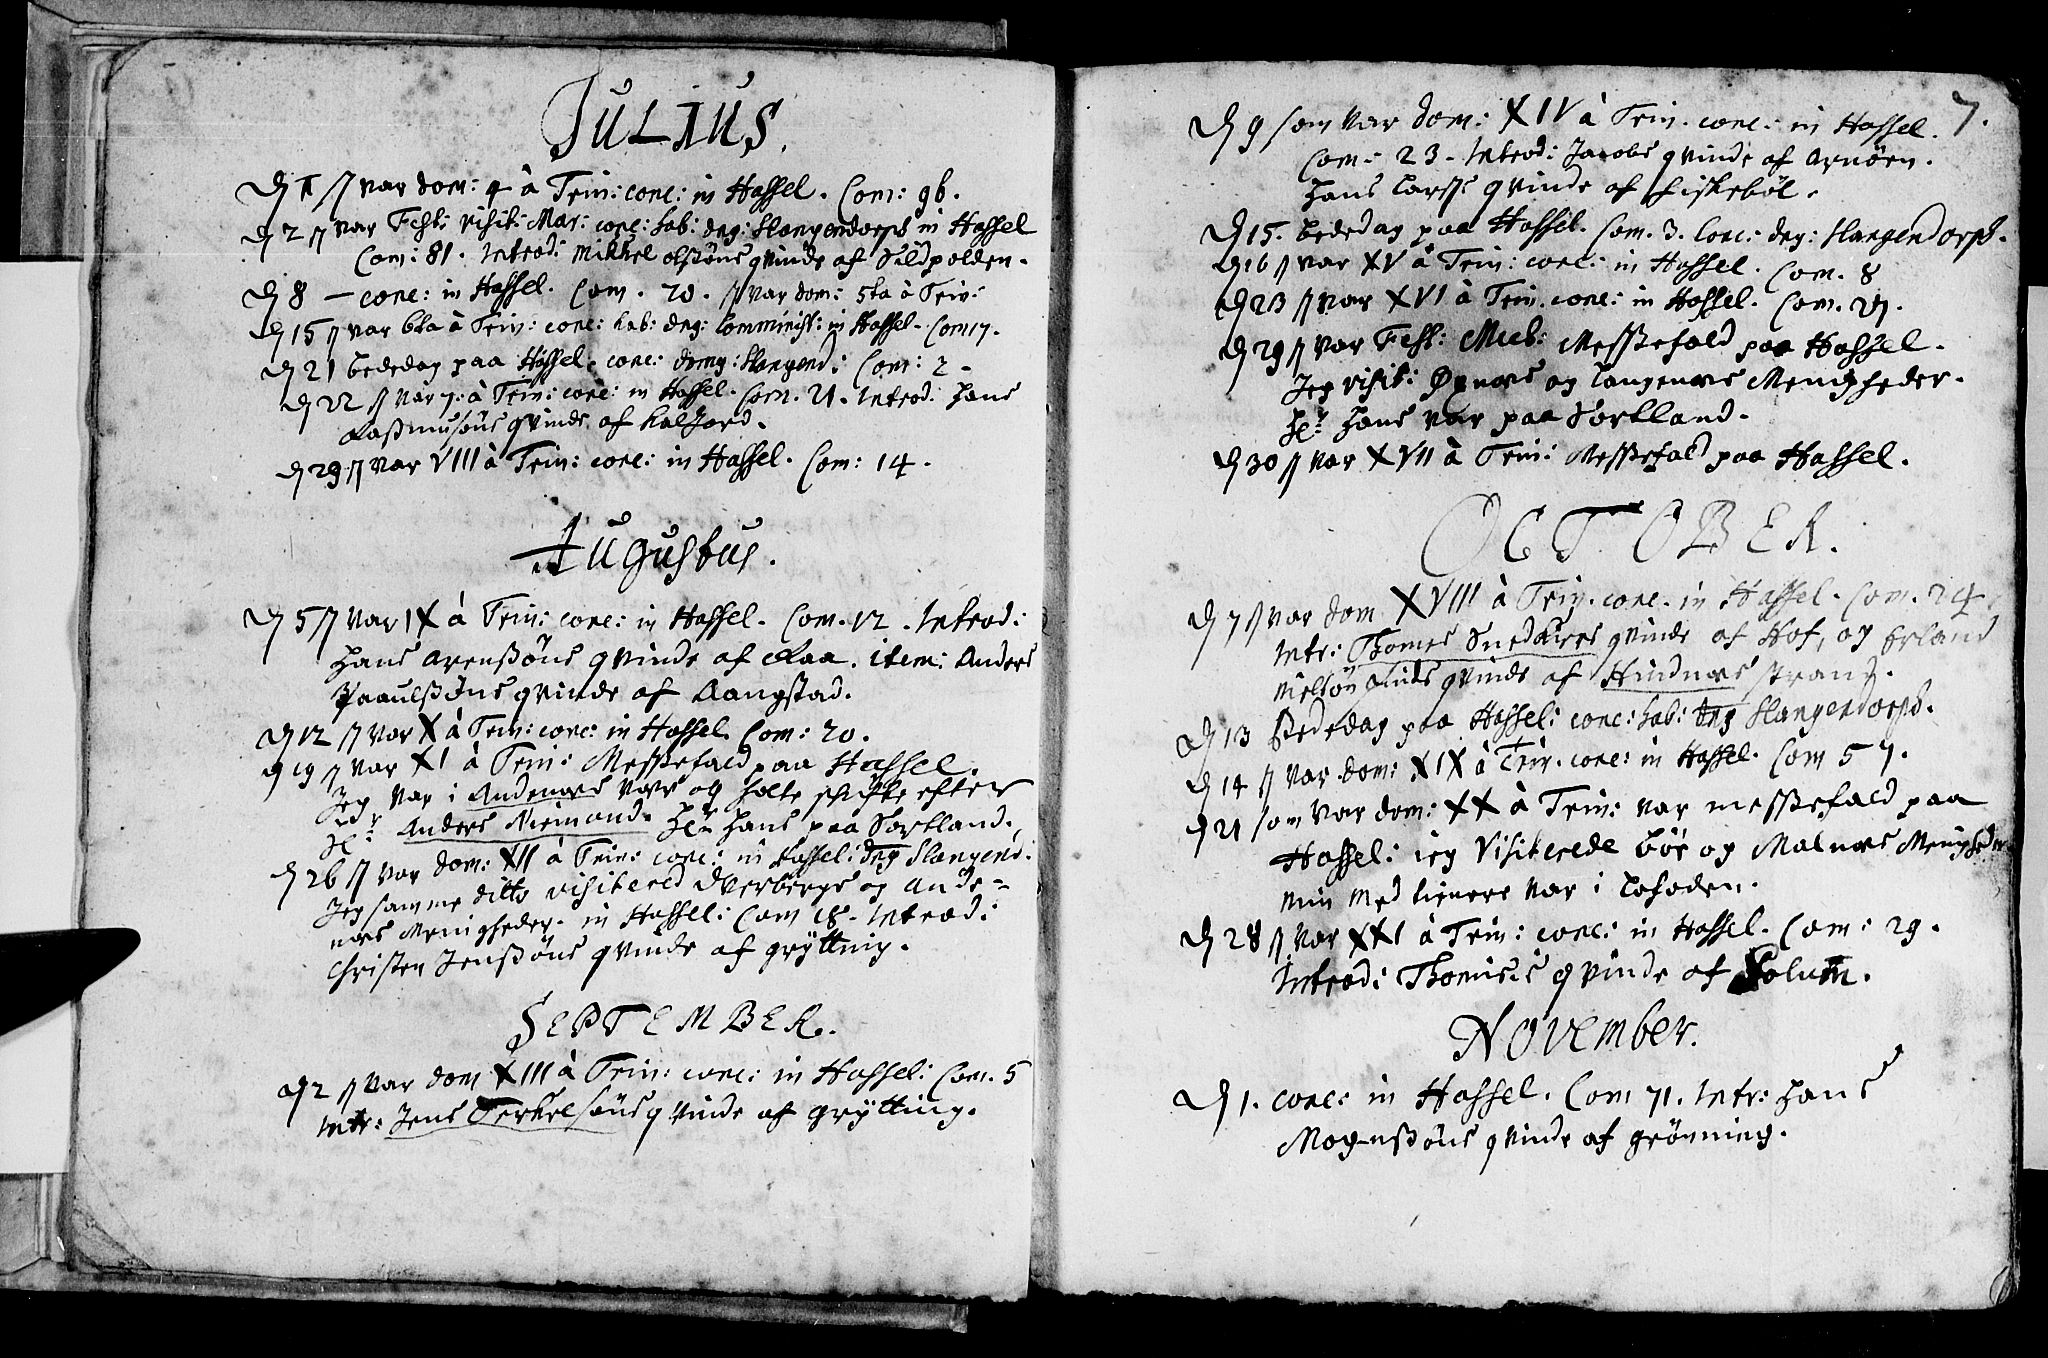 JULIUS.
D 1 ß var dom: 4 à Trin: conc: in Hassel. Com: 96.
D 2 ß var Fest: visit: Mar: conc: hab: dng: Slangendorph in Hassel
Com: 81. Introd: Mikkel olssøns qvinde af Sildpolden.
D 8 – conc: in Hassel. Com. 70. ß var dom: 5ta à Trin:
D 15 ß var 6ta à Trin: conc: hab: dng: Comminist: in Hassel. Com 17.
D 21 bededag paa Hassel. conc: domg: Slangend: Com: 2.
D 22 ß var 7. à Trin: conc: in Hassel. Com. 21. Introd: Hans
Rassmusøns qvinde af Kalfiord.
D 29 ß var VIII à Trin: conc: in Hassel. Com: 14.
Augustus.
D 5 ß var IX à Trin: conc: in Hassel. Com. 12. Introd:
Hans Arenssøns qvinde af Raa. item: Anders
Paaulssøns qvinde af Rangstad.
D 12 ß var X à Trin: conc: in Hassel. Com: 20.
D 19 ß var XI à Trin: Messefald paa Hassel.
Jeg var i Andenæs vær og holte schifte efter
Sl: Hr Anders Niemand. Hr Hans paa Sortland.
D 26 ß var dom: XII à Trin: conc: in Hassel: dng Slangend:
Jeg samme ditto visitered Dverbergs og Ande-
næs Menigheder. in Hassel: Com 18. Introd:
Christen Jenssøns qvinde af grÿtting.
SEPTEMBER.
D 2 ß var dom XIII à Trin: conc: in Hassel: Com. 5
Intr: Jens Terkelsøns qvinde af grÿtting.
7.
D 9 som var dom: XIV à Trin. conc: in Hassel.
Com: 23. Introd: Jacobs qvinde af Arnøen.
Hans Larsss qvinde af Fiskebøl.
D 15. bededag paa Hassel. Com. 3. Conc: dng: Slangendorph.
D 16 ß var XV à Trin: conc: in Hassel. Com. 8
D 23 ß var XVI à Trin. conc: in Hassel. Com. 21.
D 29 ß var Fest: Mich: Messefald paa Hassel.
Jeg visit: Øxnæs og Langenæs Menigheder.
Hr: Hans var paa Sortland.
D 30 ß var XVII à Trin: Messefald paa Hassel.
OCTOBER.
D 7 ß var dom XVIII à Trin. conc. in Hassel. Com. 24
Intr: Thomes Snedkers qvinde af Hof, og Erland
Nielsøn qvinde af Hindnæs strand.
D 13 Bededag paa Hassel: conc: hab: dng Slangendorph.
D 14 ß var dom: XIX à Trin. conc: in Hassel. Com 57.
D 21 som var dom: XX à Trin: var messefald paa
Hassel: ieg Visiterede Bøe og Malnæs Menigheder
min Medtienere var i Lofoden.
D 28 ß var XXI à Trin: conc: in Hassel. Com: 29.
Introd: Thomisis qvinde af
November.
D 1. conc: in Hassel. Com 71. Intr: Hans
Mogenssøns qvinde af grønning.